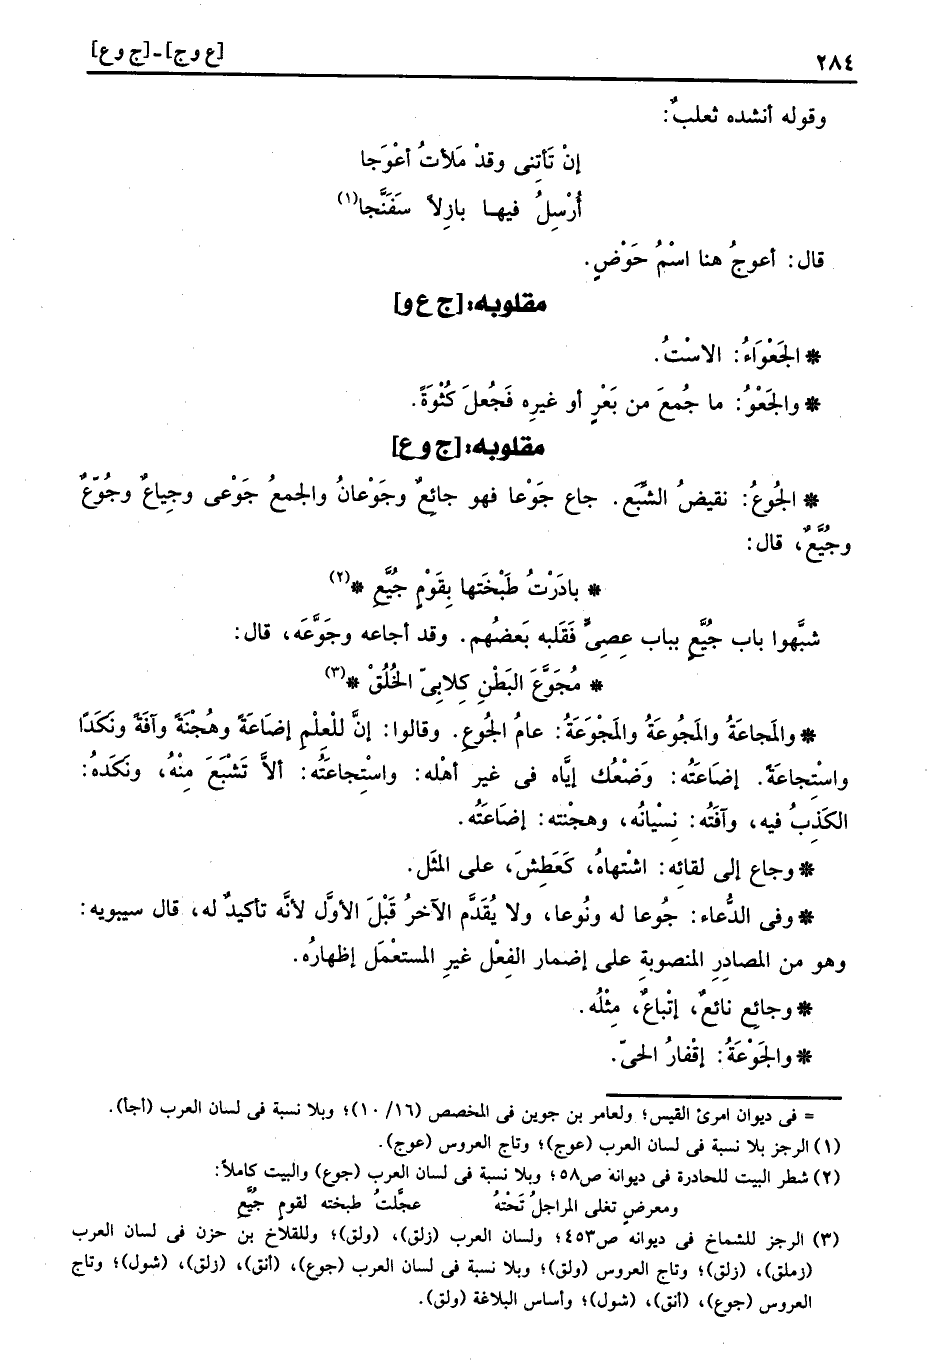 ٢٨٤ [ع و ج] - [ج و ع]
وقوله أنشده ثعلبٌ:
إنْ تَأتِنى وقدْ مَلأتُ أعْوَجا
أُرْسِلُ فيها بازِلاً سَفَنَّجا(١)
قال: أعوجُ هنا اسْمُ حَوْضٍ.
مقلوبه: [ج ع و]
* الجَعْوَاءُ: الاسْتُ.
* والجَعْوُ: ما جُمعَ من بَعْرٍ أو غيرِه فَجُعلَ كُثْوَةً.
مقلوبه: [ج و ع]
* الجُوعُ: نقيضُ الشِّبَع. جاع جَوْعا فهو جائِعٌ وجَوْعانُ والجمعُ جَوْعى وجِياعٌ وجُوَّعٌ
وجُيَّعٌ، قال:
* بادَرْتُ طَبْخَتها بِقَوْمٍ جُيَّعِ *(٢)
شبَّهوا باب جُيَّعٍ بباب عِصِىٍّ فَقَلبه بَعضُهم. وقد أجاعه وجَوَّعَه، قال:
* مُجَوَّعَ البَطْنِ كِلابِىّ الخُلُقْ *(٣)
* والمَجاعَةُ والمَجُوعَةُ والمَجْوَعَةُ: عامُ الجُوعِ. وقالوا: إنَّ للْعِلْمِ إضَاعَةً وهُجْنَةً وآفَةً ونَكَدًا
واسْتِجاعَةً. إضَاعَتُه: وَضْعُك إيَّاه فى غير أهْله: واستِجاعَتُه: ألاَّ تَشْبَعَ مِنْهُ، ونكَدهُ:
الكَذِبُ فيه، وآفَتُه: نِسْيانُه، وهجْنته: إضَاعَتُه.
* وجاع إلى لقائه: اشْتهاهُ، كَعَطِشَ، على المثَل.
* وفى الدُّعاء: جُوعا له ونُوعا، ولا يُقَدَّم الآخرُ قَبْلَ الأوَّل لأنَّه تأكيدٌ له، قال سيبويه:
وهو من المصادِرِ المنصوبةِ على إضمار الفِعْل غيرِ المستعْمَل إظهارُه.
* وجائِع نائعٌ، إتْباعٌ، مِثْلُه.
* والجَوْعَةُ: إقْفارُ الحىّ.
= فى ديوان امرئ القيس؛ ولعامر بن جوين فى المخصص (١٠/١٦)؛ وبلا نسبة فى لسان العرب (أجأ).
(١) الرجز بلا نسبة فى لسان العرب (عوج)؛ وتاج العروس (عوج).
(٢) شطر البيت للحادرة فى ديوانه ص٥٨؛ وبلا نسبة فى لسان العرب (جوع) والبيت كاملاً:
ومعرضٍ تغلى المراجلُ تَحْتهُ عجَّلتُ طبخته لقومٍ جُيَّعِ
(٣) الرجز للشماخ فى ديوانه ص٤٥٣؛ ولسان العرب (زلق)، (ولق)؛ وللقلاخ بن حزن فى لسان العرب
(زملق)، (زلق)؛ وتاج العروس (ولق)؛ وبلا نسبة فى لسان العرب (جوع)، (أنق)، (زلق)، (شول)؛ وتاج
العروس (جوع)، (أنق)، (شول)؛ وأساس البلاغة (ولق).